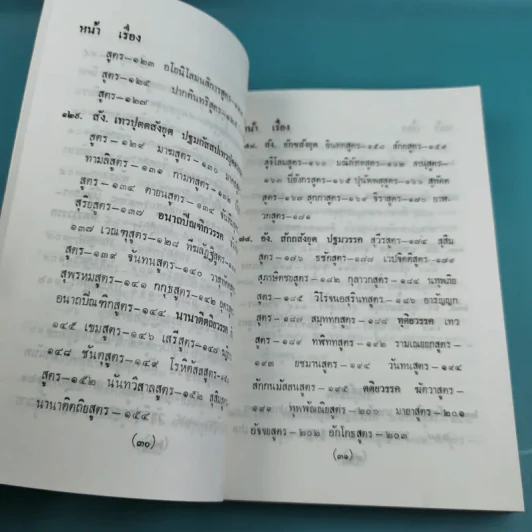 หน้า เรื่อง
สูตร—๑๒๓ อโยนิโสมนสิการสูตร—๑๒๔
สูตร—๑๒๕ ปากตินทริสูตร—
สูตร—๑๒๗
๑๒๙. สํ. เทวปุตตสังยุต ปฐมกัสสปเทวปุตต
สูตร—๑๒๙ มาฆสูตร—๑๓๐
ทามลิสูตร—๑๓๑ กามทสูตร—๑๓๒
สูตร—๑๓๔ ตายนสูตร—๑๓๔
สุริยสูตร—๑๓๗ อนาถปิณฑิกวรรค
๑๓๗ เวณฑุสูตร—๑๓๘ ทีฆลัฏฐิสูตร—
สูตร—๑๓๙ จันทนสูตร—๑๔๐
สุพรหมสูตร—๑๔๑ กกุธสูตร—๑๔๒
อนาถปิณฑิกสูตร—๑๔๔ นานาติตถิยวรรค
๑๔๕ เขมสูตร—๑๔๖ เสรีสูตร—
๑๔๘ ชันตุสูตร—๑๔๙ โรหิตัสสสูตร—
สูตร—๑๕๒ นันทวิสาลสูตร—๑๕๒ สุสิม
นานาติตถิยสูตร—๑๕๔
(๓๐)
หน้า เรื่อง
สํ. ยักขสังยุต อินทกสูตร—๑๕๘ สักกสูตร—๑๕๙
สูจิโลมสูตร—๑๖๐ มณิภัททสูตร—๑๖๒ สานุสูตร—
๑๖๓ ปิยังกรสูตร—๑๖๕ ปุนัพพสุสูตร—๑๖๖ สุทัตต
สูตร—๑๖๘ สุกกาสูตร—๑๗๐ จีราสูตร—๑๗๐ อาฬ
วกสูตร—๑๗๑
สํ. สักกสังยุต ปฐมวรรค สุวีรสูตร—๑๗๔ สุสิม
สูตร—๑๗๖ ธชัคสูตร—๑๗๗ เวปจิตติสูตร—
สุภาสิตชยสูตร—๑๘๑ กุลาวกสูตร—๑๘๔ นทุพภิย
สูตร—๑๘๕ วิโรจนอสุรินทสูตร—๑๘๖ อารัญญก
สูตร—๑๘๗ สมุททกสูตร—๑๘๘ ทุติยวรรค เทว
สูตร—๑๙๑ ทฬิททสูตร—๑๙๒ รามเณยยกสูตร—
๑๙๓ ยชมานสูตร—๑๙๔ วันทนสูตร—๑๙๔
สักกนมัสสนสูตร—๑๙๕ ตติยวรรค ฆัตวาสูตร—
๑๙๙ ทุพพัณณิยสูตร—๒๐๐ มายาสูตร—๒๐๑
อัจจยสูตร—๒๐๒ อักโกธสูตร—๒๐๓
(๓๑)